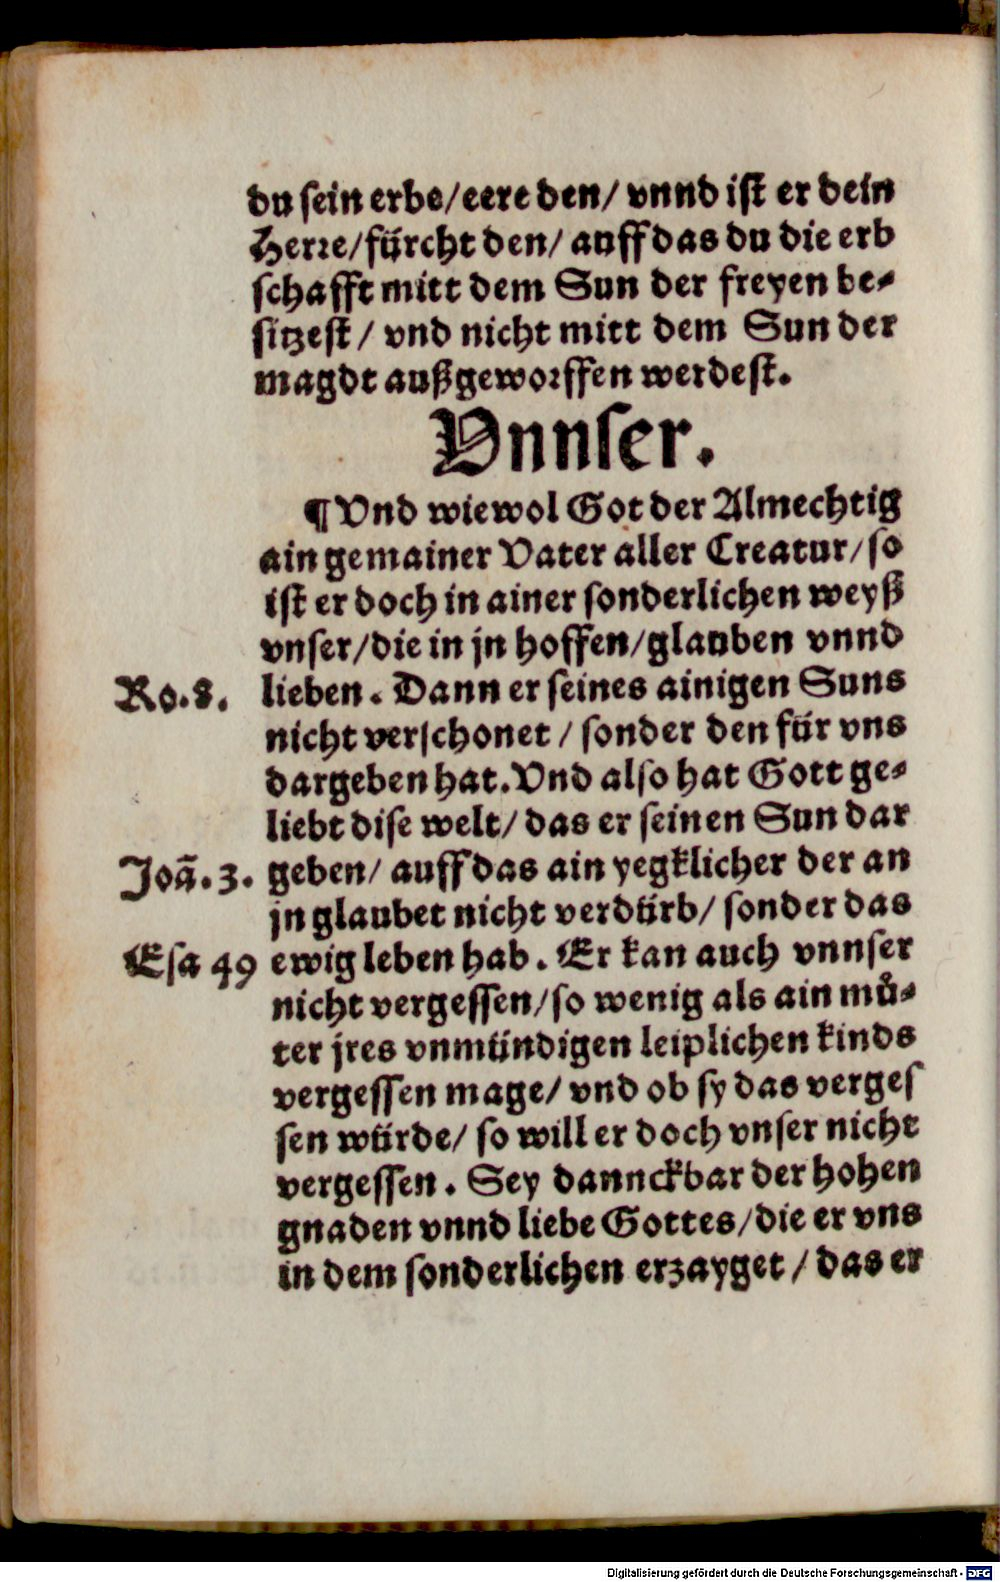 du sein erbe/eere den/ vnnd ist er dein
Herre/fürcht den/ auff das du die erb
schafft mitt dem Sun der freyen be-
sitzest/ vnd nicht mitt dem Sun der
magdt außgeworffen werdest.
Vnnser.
¶ Vnd wiewol Got der Almechtig
ain gemainer Vater aller Creatur/so
ist er doch in ainer sonderlichen weyß
vnser/die in jn hoffen/glauben vnnd
Ro.8. lieben. Dann er seines ainigen Suns
nicht verschonet/sonder den für vns
dargeben hat. Vnd also hat Gott ge-
liebt dise welt/ das er seinen Sun dar
Joã.3. geben/ auff das ain yegklicher der an
jn glaubet nicht verdürb/ sonder das
Esa 49 ewig leben hab. Er kan auch vnnser
nicht vergessen/so wenig als ain mů-
ter jres vnmündigen leiplichen kinds
vergessen mage/ vnd ob sy das verges
sen würde/ so will er doch vnser nicht
vergessen. Sey dannckbar der hohen
gnaden vnnd liebe Gottes/die er vns
in dem sonderlichen erzayget/das er
Digitalisierung gefördert durch die Deutsche Forschungsgemeinschaft - DFG